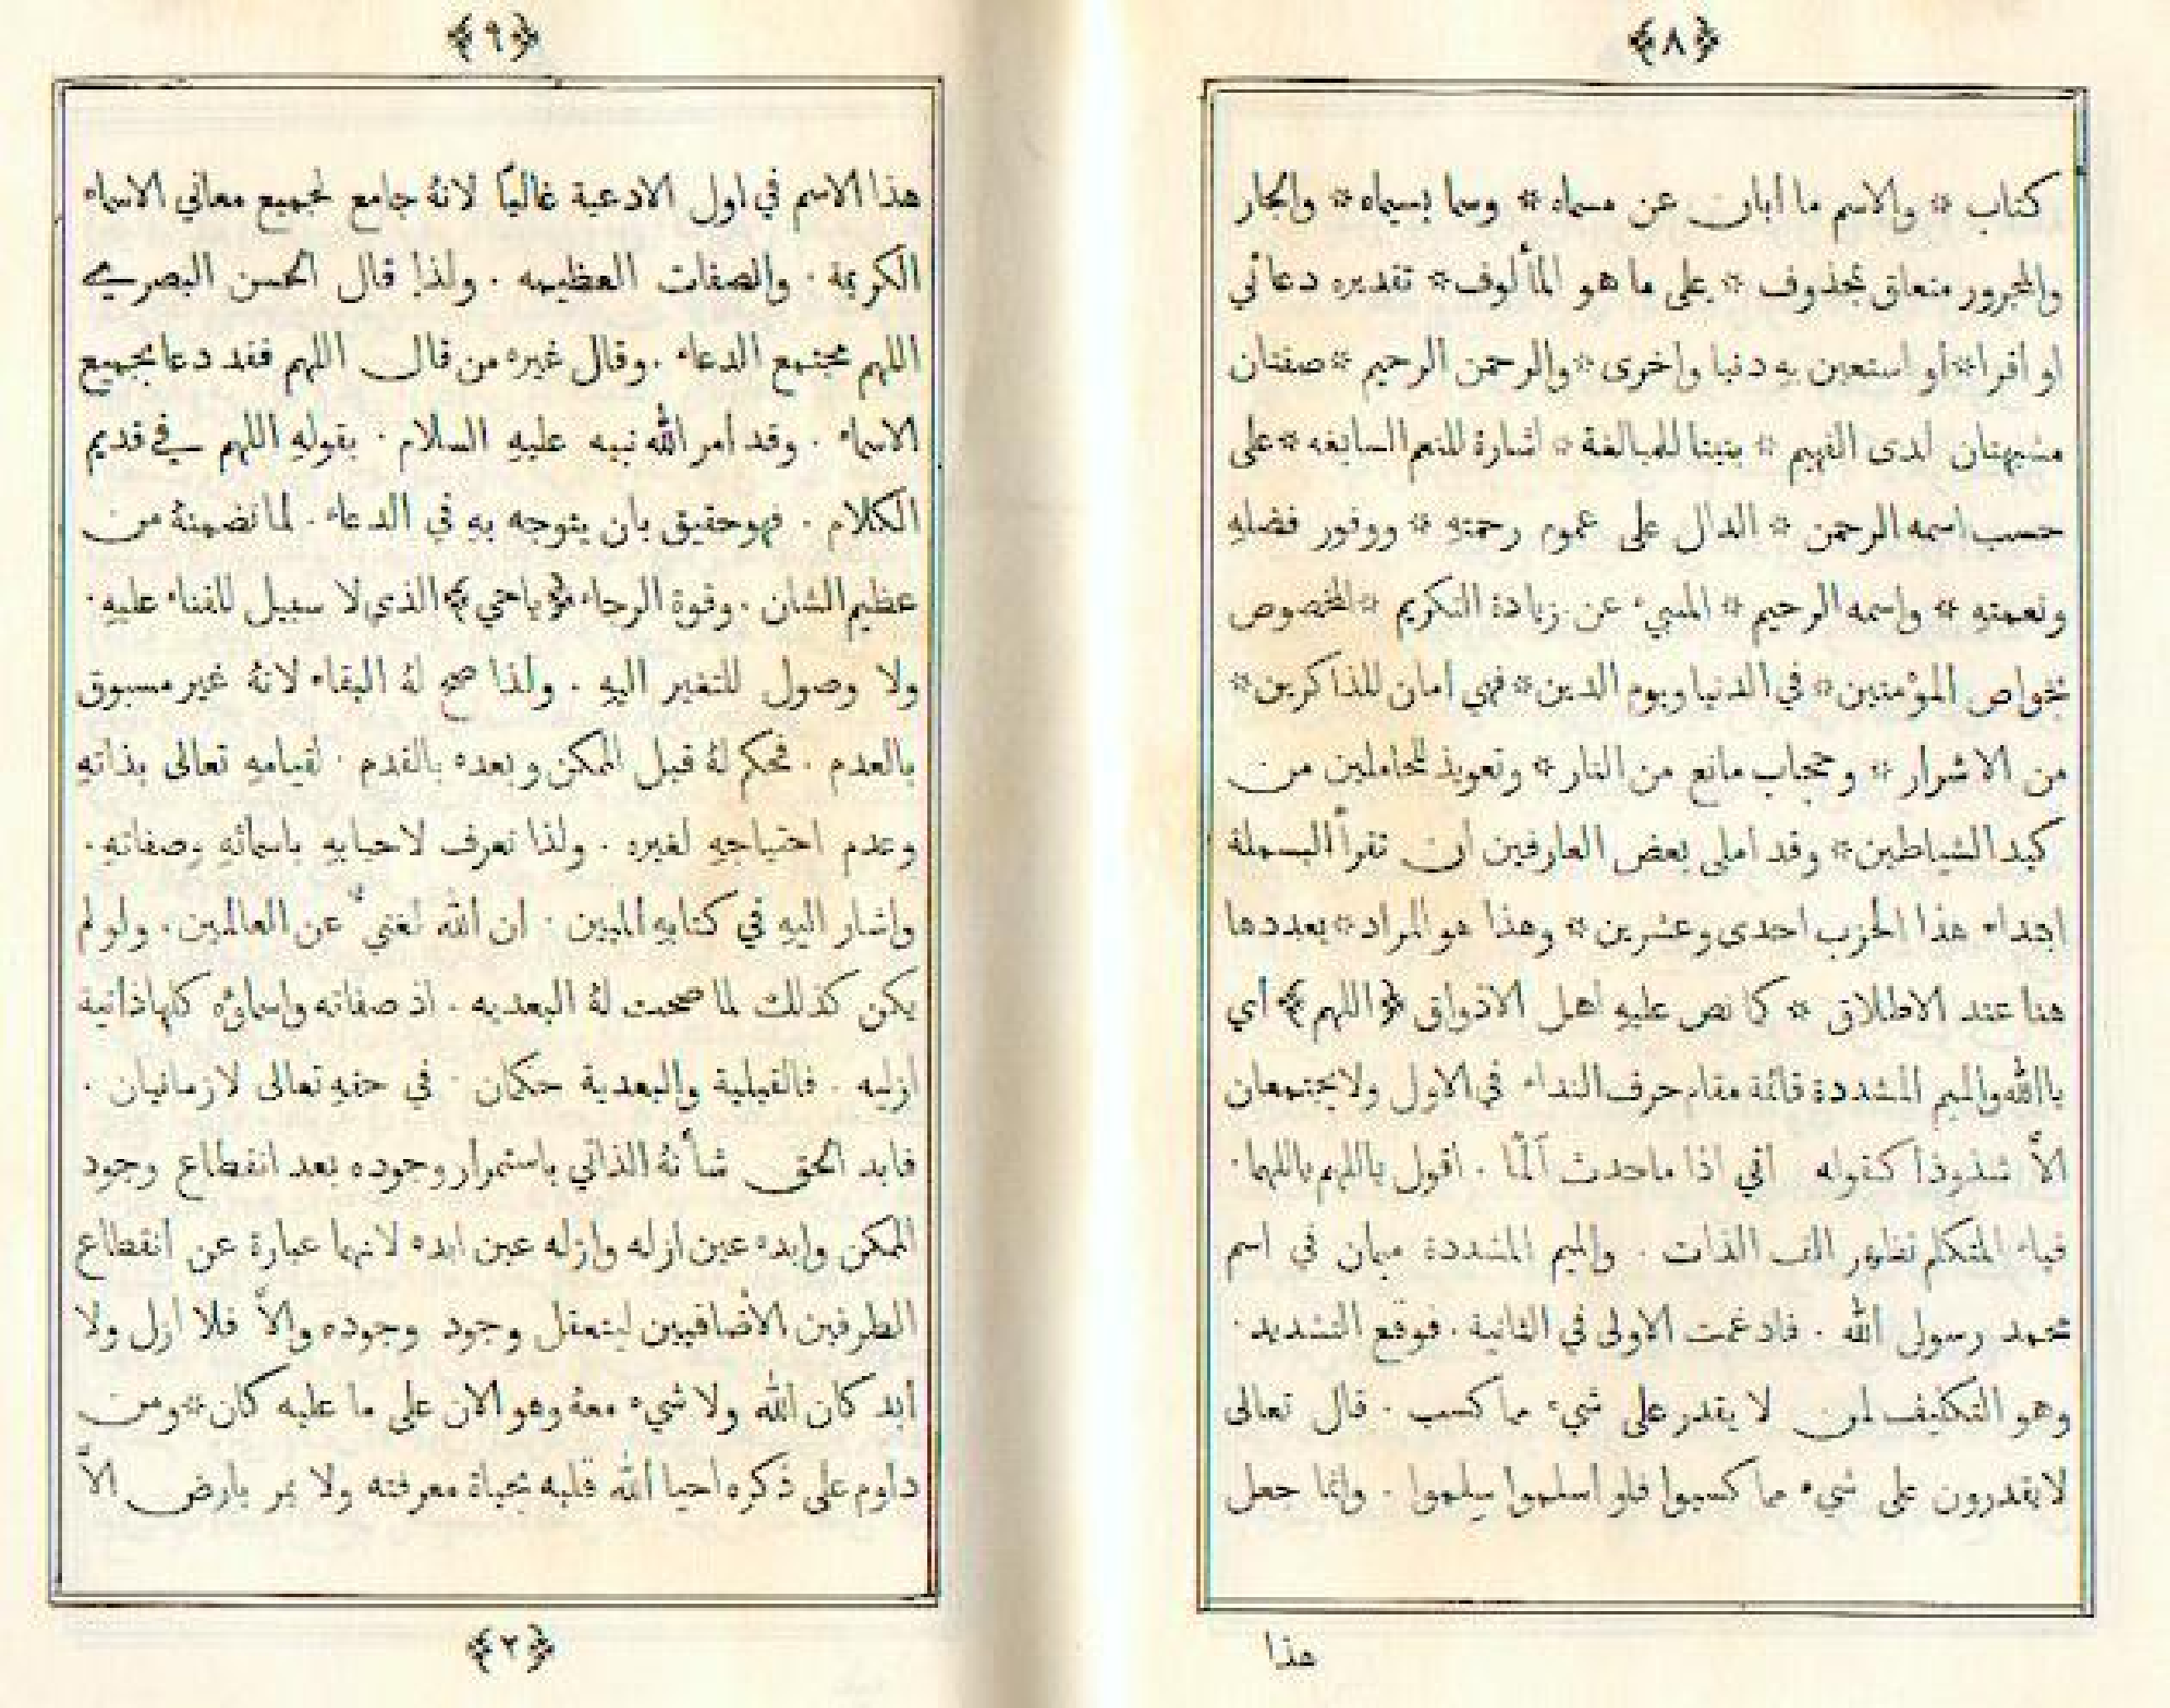 ﴿٨﴾
كتاب * والاسم ما ابان عن مسماه * وسما بسيماه * والجار
والمجرور متعلق بمحذوف * على ما هو المألوف * تقديره دعائي
او اقرا * أو استعين به دنيا واخرى * والرحمن الرحيم * صفتان
مشبهتان لدى الفهيم * بنيتا للمبالغة * اشارة للنعم السابغه * على
حسب اسمه الرحمن * الدال على عموم رحمته * ووفور فضله
ونعمته * واسمه الرحيم * المنبيء عن زيادة التكريم * المخصوص
بخواص المؤمنين * في الدنيا ويوم الدين * فهي امان للذاكرين *
من الاشرار * وحجاب مانع من النار * وتعويذ للحاملين من
كيد الشياطين * وقد املى بعض العارفين ان تقرأ البسملة
ابتداء هذا الحزب احدى وعشرين * وهذا هو المراد * بعددها
هنا عند الاطلاق * كما نص عليه اهل الاذواق ﴿اللهم﴾ اي
ياالله والميم المشددة قائمة مقام حرف النداء في الاول ولا يجتمعان
الاَّ شذوذا كقوله اني اذا ماحدث ألمَّا . اقول ياللهم ياللهما .
فياء المتكلم تظهر الف الذات . والميم المشددة ميمان في اسم
محمد رسول الله . فادغمت الاولى في الثانية . فوقع التشديد .
وهو التكليف لمن لا يقدر على شيء مما كسب . قال تعالى
لايقدرون على شيء مما كسبوا فلو اسلموا سلموا . وانما جعل
هذا
﴿٩﴾
هذا الاسم في اول الادعية غالبًا لانهُ جامع لجميع معاني الاسماء
الكريمة . والصفات العظيمه . ولذا قال الحسن البصري
اللهم مجتمع الدعاء . وقال غيره من قال اللهم فقد دعا بجميع
الاسماء . وقد امر الله نبيه عليهِ السلام . بقوله اللهم في قديم
الكلام . فهو حقيق بان يتوجه به في الدعاء . لما تضمنهُ من
عظيم الشان . وقوة الرجاء ﴿ياحي﴾ الذي لا سبيل للفناء عليهِ .
ولا وصول للتغير اليهِ . ولذا صح لهُ البقاء لانهُ غير مسبوق
بالعدم . فحكم لهُ قبل الممكن وبعده بالقدم . لقيامهِ تعالى بذاتهِ
وعدم احتياجهِ لغيره . ولذا تعرف لاحبابهِ باسمائهِ وصفاتهِ .
واشار اليهِ في كتابهِ المبين . ان الله لغنيٌّ عن العالمين . ولو لم
يكن كذلك لما صحت لهُ البعديه . اذ صفاته واسمائه كلها ذاتية
ازليه . فالقبلية والبعدية حكمان . في حقهِ تعالى لا زمانيان .
فابد الحق شأنهُ الذاتي باستمرار وجوده بعد انقطاع وجود
الممكن وابده عين ازله وازله عين ابده لانهما عبارة عن انقطاع
الطرفين الأضافيين ليتعقل وجود وجوده والاَّ فلا ازل ولا
أبد كان الله ولا شيء معهُ وهو الان على ما عليه كان * ومن
داوم على ذكره احيا الله قلبه بحياة معرفته ولا يمر بارض الاَّ
﴿٢﴾